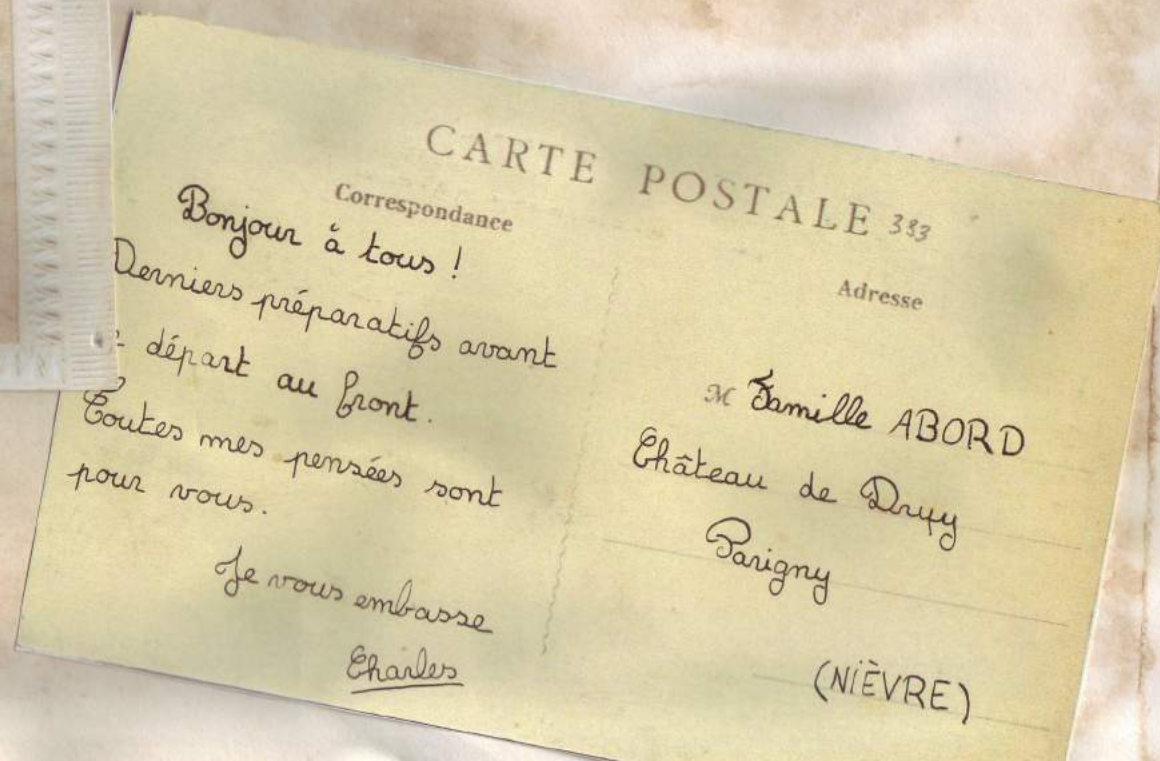 CARTE POSTALE 383
Correspondance
Bonjour à tous !
Derniers préparatifs avant
départ au front.
Toutes mes pensées sont
pour vous.
Je vous embasse
Charles
Adresse
M Famille ABORD
Château de Druy
Parigny
(NIÈVRE)